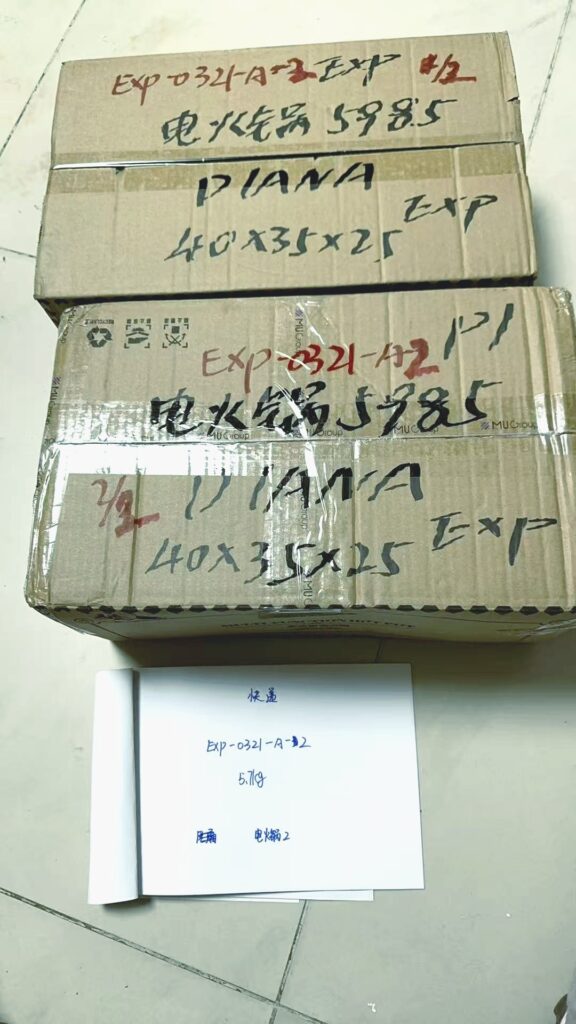 Exp-0321-A-2 Exp 1/2
电火锅 5985
DIANA
40x35x25 Exp
MUGroup
Exp-0321-A2 PI
电火锅 5985
MUGroup MUGroup MUGroup
2/2 DIANA
40x35x25 Exp
快递
Exp-0321-A-2
5.7kg
电火锅2